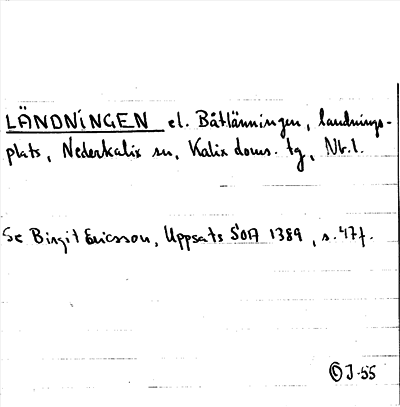 LÄNDNINGEN el. Båtlänningen, landnings-
plats, Nederkalix sn, Kalix doms. tg, Nb.l.
Se Birgit Ericsson, Uppsats SOA 1389, s. 47f.
J-55